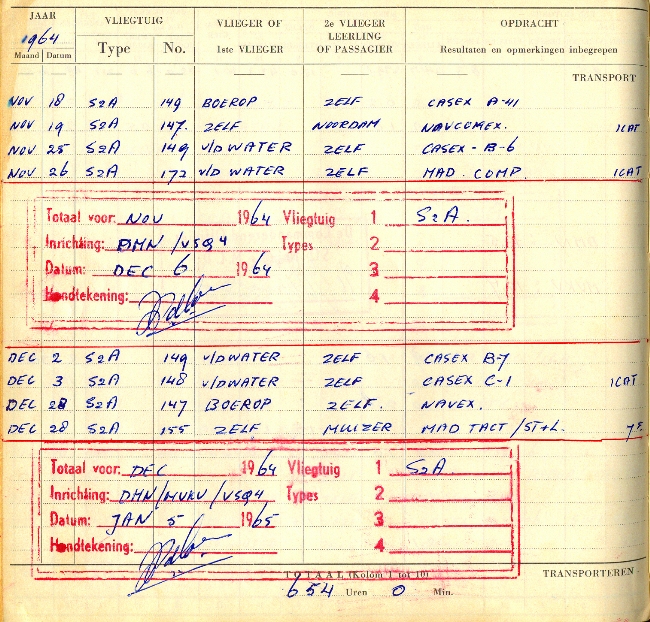 JAAR VLIEGTUIG VLIEGER OF 2e VLIEGER OPDRACHT
1964 LEERLING
Maand Datum Type No. 1ste VLIEGER OF PASSAGIER Resultaten en opmerkingen inbegrepen
TRANSPORT
NOV 18 S2A 149 BOEROP ZELF CASEX A-41
NOV 19 S2A 147. ZELF NOORDAM NAVCOMEX. 1CAT
NOV 25 S2A 149 v/D WATER ZELF CASEX - B-6
NOV 26 S2A 172 v/D WATER ZELF MAD. COMP. 1CAT
Totaal voor: NOV 1964 Vliegtuig 1 S2A.
Inrichting: DMN /VSQ4 Types 2
Datum: DEC 6 1964 3
Handtekening: 4
DEC 2 S2A 149 v/D WATER ZELF CASEX B-7
DEC 3 S2A 148 v/D WATER ZELF CASEX C-1 1CAT
DEC 28 S2A 147 BOEROP ZELF. NAVEX.
DEC 28 S2A 155 ZELF MUIZER MAD TACT /ST+L.
Totaal voor: DEC 1964 Vliegtuig 1 S2A
Inrichting: DMN/MVKV/VSQ4 Types 2
Datum: JAN 5 1965 3
Handtekening: 4
TOTAAL (Kolom 1 tot 10) TRANSPORTEREN
654 Uren 0 Min.